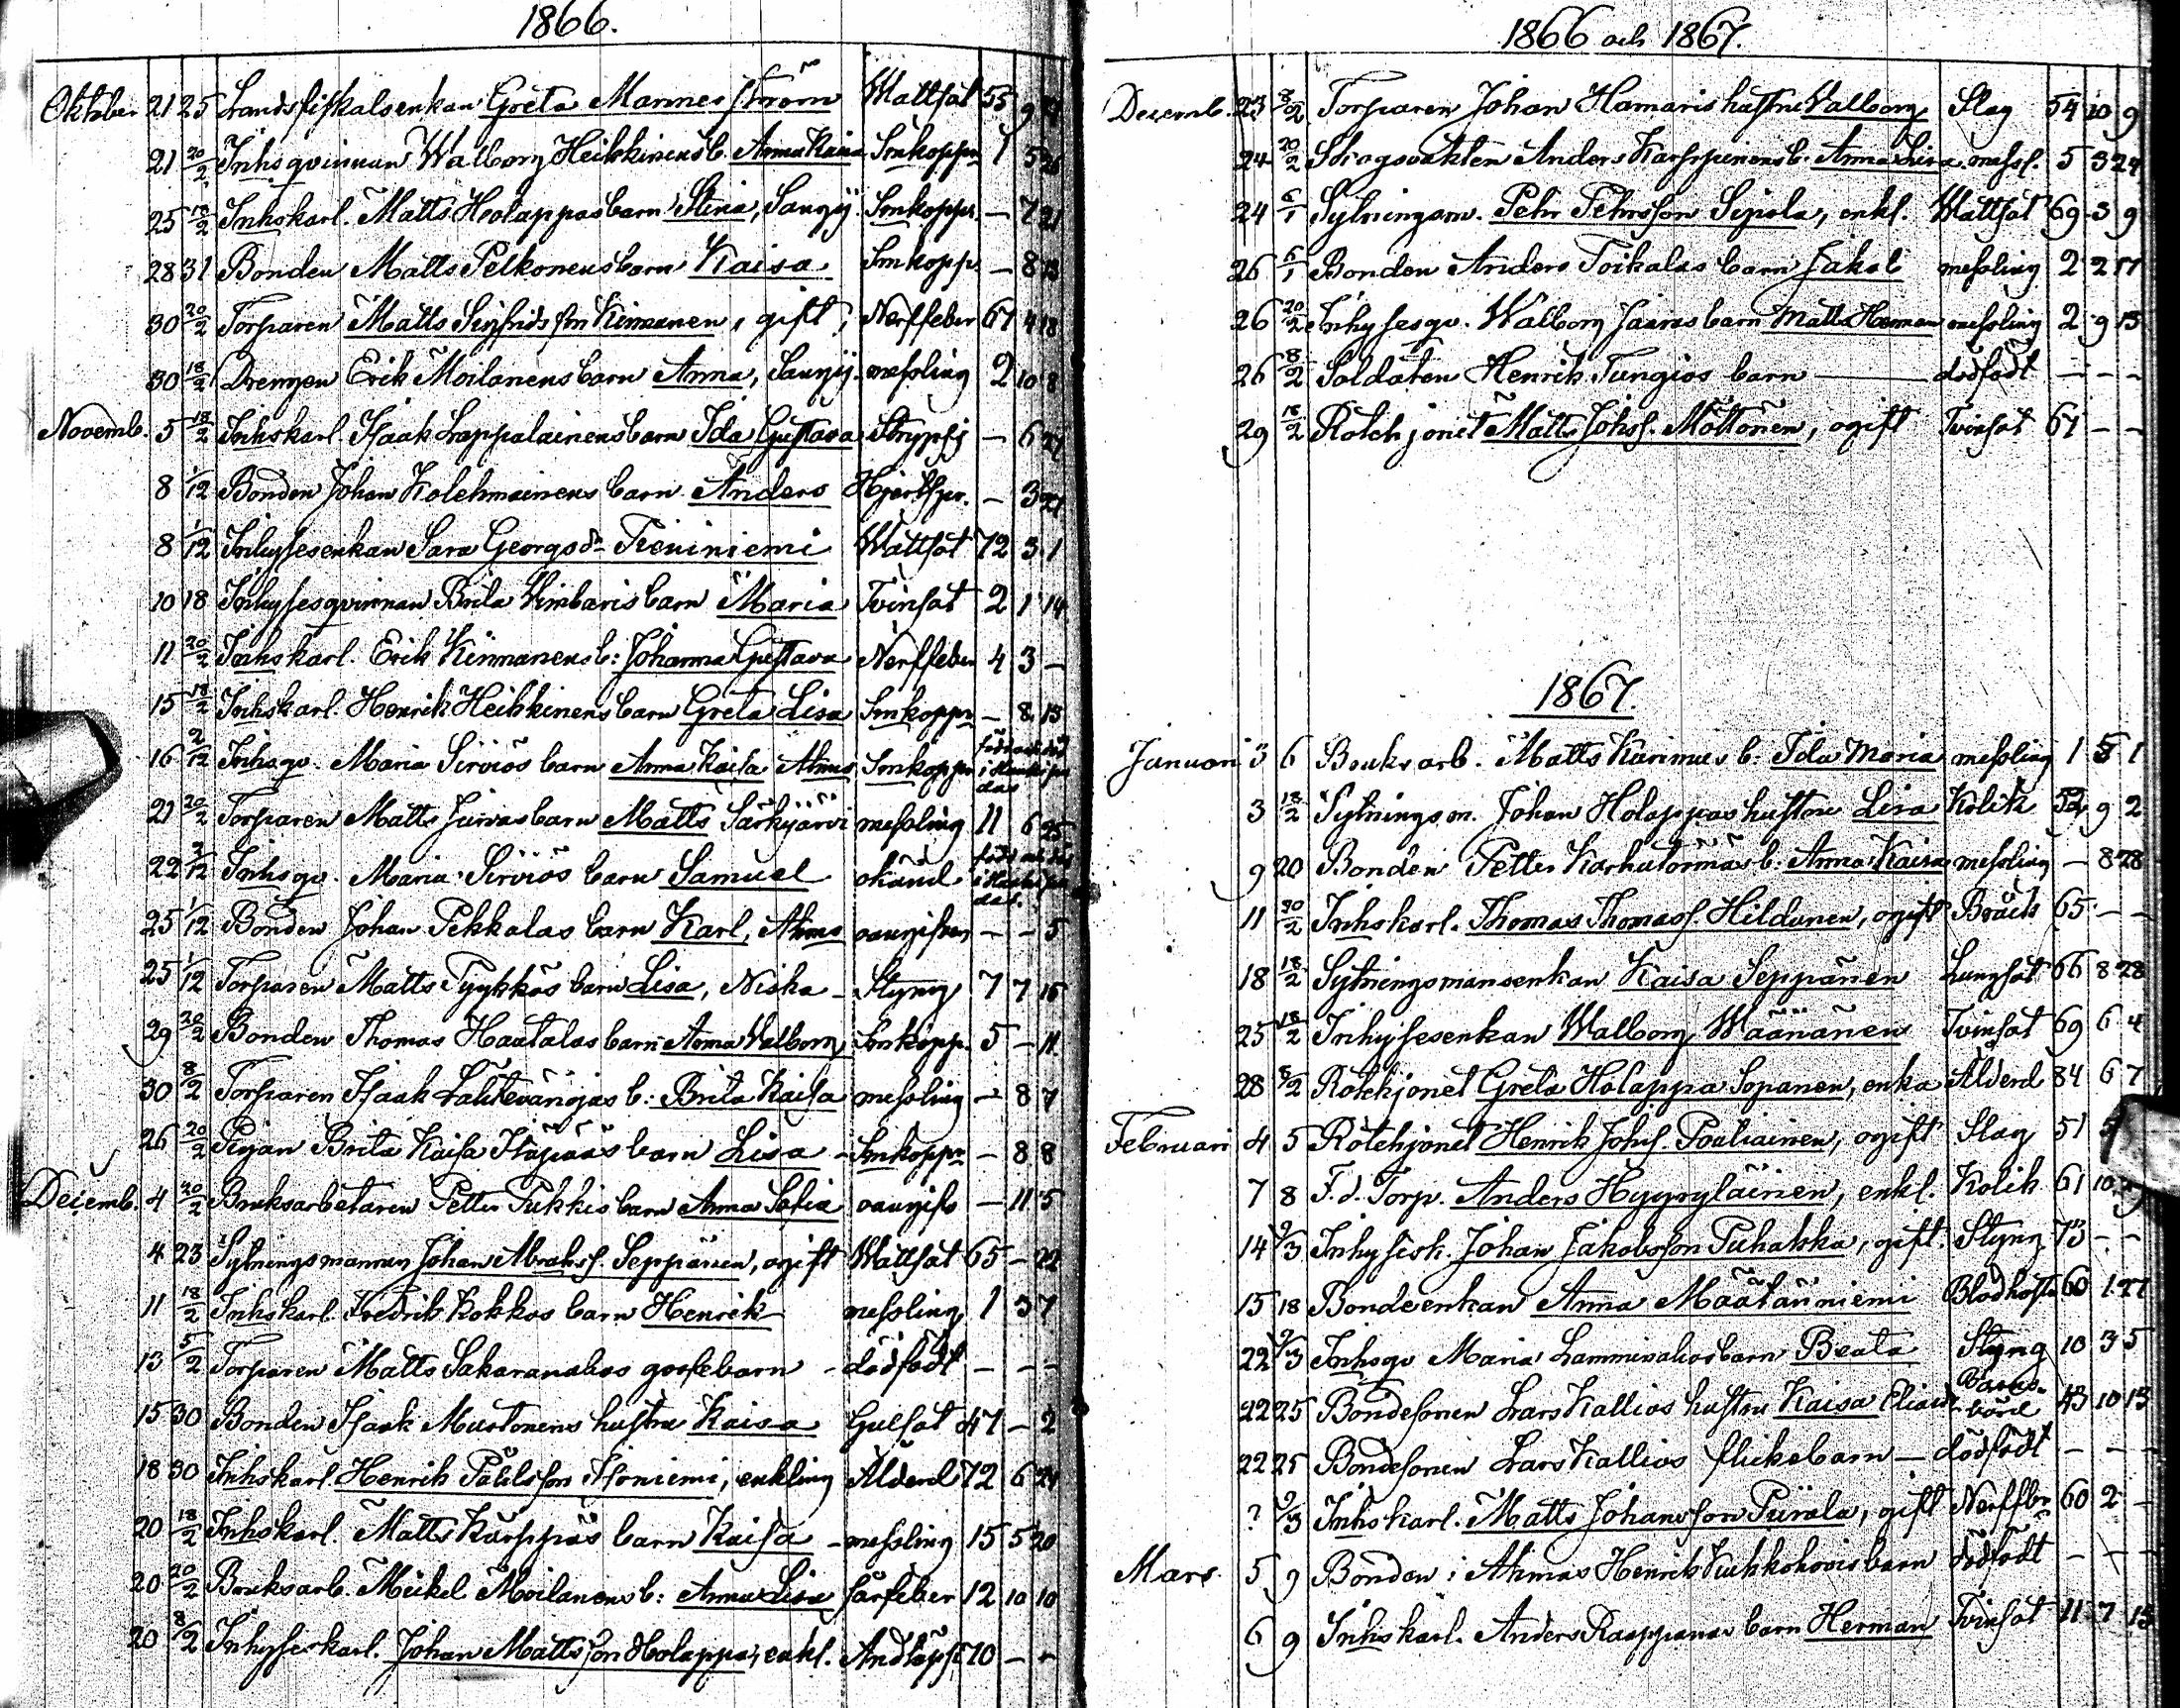 1866.
Oktober 21 25 Landsfiskalsenkan Greta Mannerström Wattsot 55 9
21 20/2 Inhsqvinnan Walborg Heikkinens b. Anna Kaisa Smkoppr 1 5 26
25 18/2 Inhskarl. Matts Holappas barn Stina, Smkoppr. – 7 21
28 31 Bonden Matts Pelkonens barn Kaisa Smkopp – 8 13
30 20/2 Torparen Matts Sigfridsson Kinnunen, gift, Nerffeber 67 4 18
30 18/2 Drengen Erik Moilanens barn Anna, messling 2 10 8
Novemb. 5 18/2 Inhskarl. Isaak Lappalainens barn Ida Gustava Strypsj – 6 27
8 1/12 Bonden Johan Kolehmainens barn Anders Hjertspr. – 3 21
8 1/12 Inhysesenkan Sara Georgsdr Tieviniemi Wattsot 72 3 1
10 18 Inhysesqvinnan Brita Kimbaris barn Maria Tvinsot 2 1 14
11 20/2 Inhskarl. Erik Kinnunens b: Johanna Gustava Nerffeber 4 3 –
15 18/2 Inhskarl. Henrik Heikkinens barn Greta Lisa Smkoppr – 8 13
16 2/12 Inhsqv. Maria Sirviös barn Anna Kaisa Ahmas Smkoppr född och död i Haukipudas
21 20/2 Torparen Matts Juvas barn Matts Särkijärvi messling 11 6 25
22 2/12 Inhsqv. Maria Sirviös barn Samuel okänd född och död i Haukipudas.
25 1/12 Bonden Johan Pekkalas barn Karl, Ahmas oangifven – – 5
25 1/12 Torparen Matts Tyykkös barn Lisa, Niska – Styng 7 7 15
29 20/2 Bonden Thomas Haatalas barn Anna Walborg Smkopp. 5 – 11.
30 8/2 Torparen Isaak Lahtevänojas b: Brita Kaisa messling – 8 7
26 20/2 Pigan Brita Kaisa barn Lisa – Smkoppr – 8 8
Decemb. 4 20/2 Bruksarbetaren Petter Pukkis barn Anna Sofia oangifv – 11 5
4 23 Sytningsmannen Johan Abrahsf. Seppänen, ogift Wattsot 65 – 22
11 18/2 Inhskarl Fredrik Kokkos barn Henrik messling 1 3 7
13 5/2 Torparen Matts Sakaranahos gossebarn – dödfödt – – –
15 30 Bonden Isaak Mustonens hustru Kaisa Gulsot 47 – 2
18 30 Inhskarl. Henrik Påhlsson Isoniemi, enkling Ålderd 72 6 24
20 18/2 Inhskarl. Matts Karppas barn Kaisa – messling 15 5 20
20 20/2 Bruksarb. Mickel Moilanens b: Anna Lisa Sårfeber 12 10 10
20 8/2 Inhyseskarl. Johan Mattsson Holappa, enkl. Andtäppa 70 – –
1866 och 1867.
Decemb. 23 8/2 Torparen Johan Hamaris hustru Walborg Slag 54 10 9
24 20/2 Skogsvakten Anders Karppinens b. Anna Lisa messl. 5 3 24
24 6/1 Sytningsm. Pehr Pehrsson Sipola, enkl. Wattsot 69 3 9
26 6/1 Bonden Anders Toikalas barn Jakob messling 2 2 17
26 20/2 Inhysesqv. Walborg Juuras barn Matts Herman messling 2 9 13
26 8/2 Soldaten Henrik Tungios barn – dödfödt – – –
29 18/2 Rotehjonet Matts Johsf. Möttönen, ogift Tvinsot 67 – –
1867.
Januari 3 6 Bruksarb. Matts Karinens b. Ida Maria messling 1 5 1
3 18/2 Sytningsm. Johan Holappas hustru Lisa Kolik 52 9 2
9 20 Bonden Petter Karhutörmäs b. Anna Kaisa messling – 8 28
11 20/2 Inhskarl. Thomas Thomasf. Hildunen, ogift Bråck 65 – –
18 18/2 Sytningsmansenkan Kaisa Seppänen Lungsot 66 8 28
25 18/2 Inhysesenkan Walborg Wäänänen Tvinsot 69 6 4
28 8/2 Rotehjonet Greta Holappa Sopanen, enka Ålderd 84 6 7
Februari 4 5 Rotehjonet Henrik Johsf. Pooliainen, ogift Slag 51 5
7 8 F.d. Torp. Anders Hyyryläinen, enkl. Kolik 61 10
14 9/3 Inhysesk. Johan Jakobsson Puhakka, gift. Styng 73 – –
15 18 Bondeenkan Anna Määtänniemi Blodhosta 60 1 27
22 9/3 Inhsqv Maria Lamminahos barn Beata Styng 10 3 5
22 25 Bondesonen Lars Kallios hustru Kaisa Barnsbörd 43 10 13
22 25 Bondesonen Lars Kallios flickebarn – dödfödt – – –
? 9/3 Inhskarl. Matts Johansson Purola, gift Nerffbr 60 2 –
Mars. 5 9 Bonden i Ahmas Henrik Kukkohovis barn dödfödt – – –
6 9 Inhskarl. Anders Raappanas barn Herman Tvinsot 11 7 15